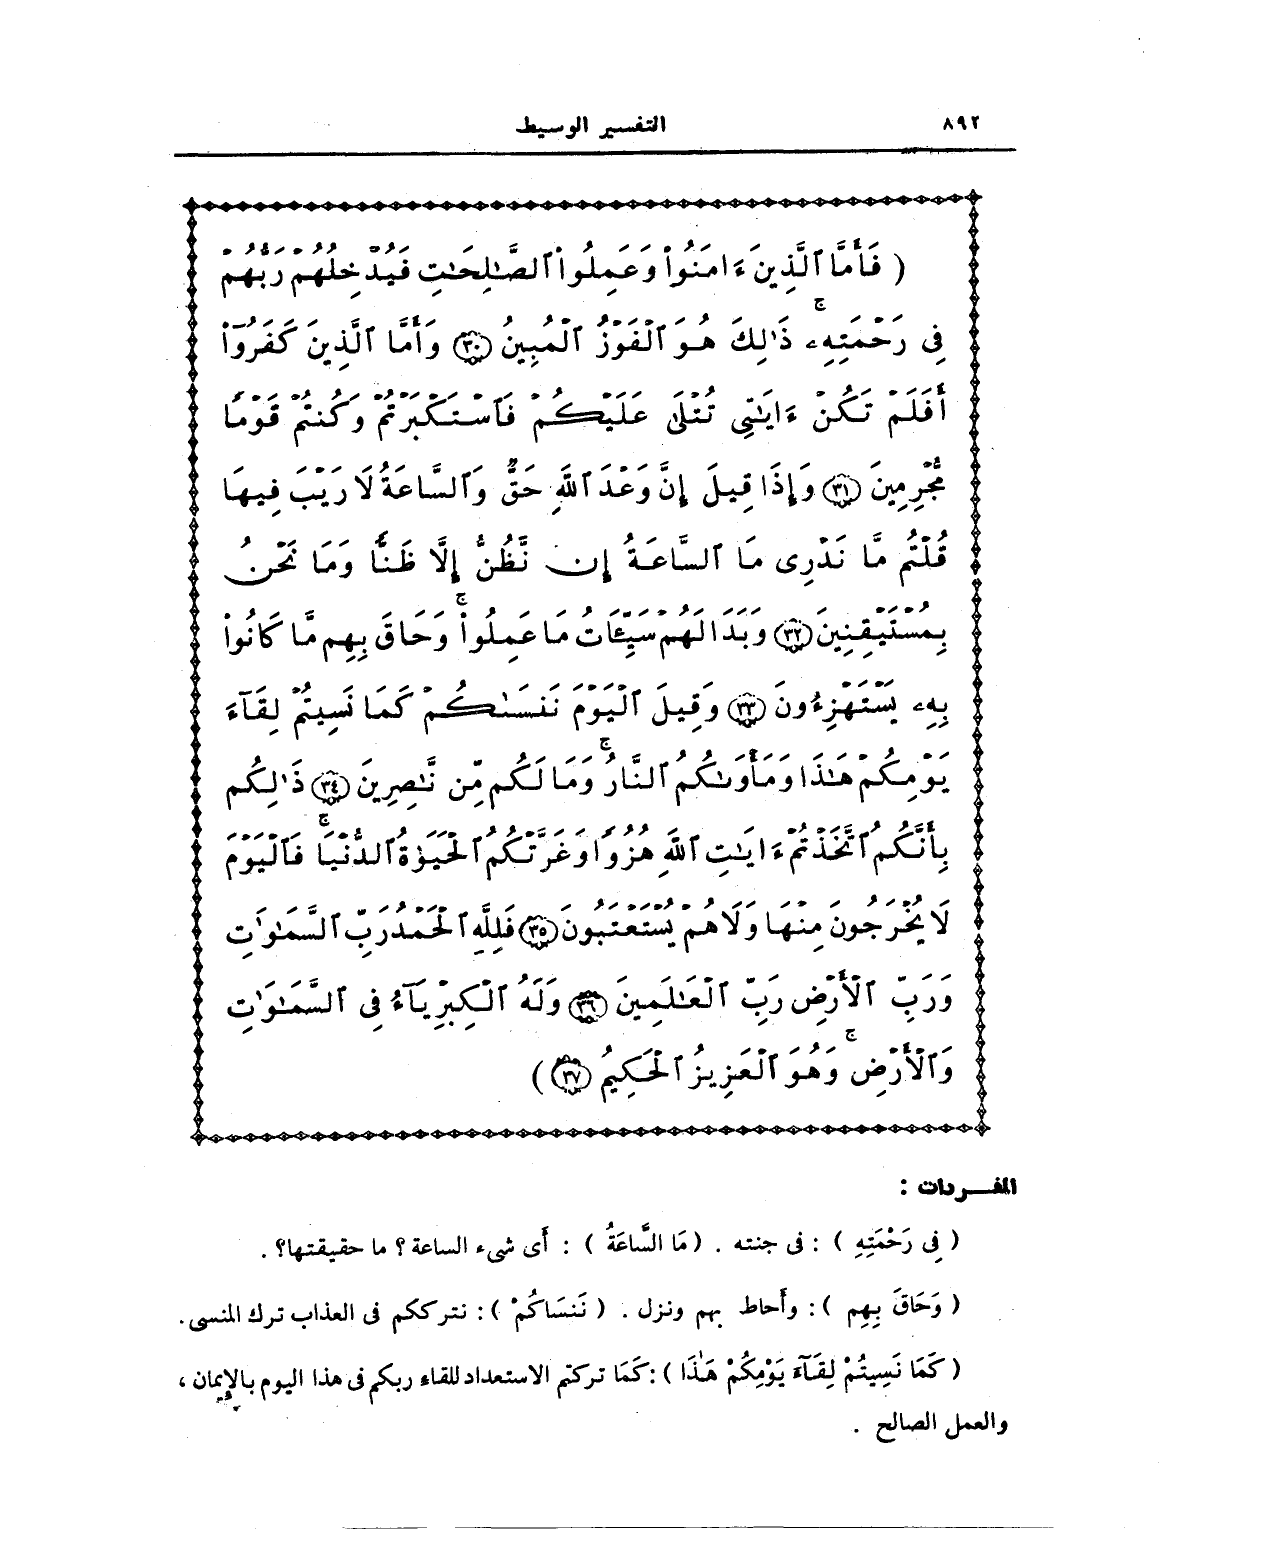 ٨٩٢ التفسير الوسيط
( فَأَمَّا ٱلَّذِينَ ءَامَنُوا۟ وَعَمِلُوا۟ ٱلصَّـٰلِحَـٰتِ فَيُدْخِلُهُمْ رَبُّهُمْ
فِى رَحْمَتِهِۦ ۚ ذَٰلِكَ هُوَ ٱلْفَوْزُ ٱلْمُبِينُ ٣٠ وَأَمَّا ٱلَّذِينَ كَفَرُوٓا۟
أَفَلَمْ تَكُنْ ءَايَـٰتِى تُتْلَىٰ عَلَيْكُمْ فَٱسْتَكْبَرْتُمْ وَكُنتُمْ قَوْمًا
مُّجْرِمِينَ ٣١ وَإِذَا قِيلَ إِنَّ وَعْدَ ٱللَّهِ حَقٌّ وَٱلسَّاعَةُ لَا رَيْبَ فِيهَا
قُلْتُم مَّا نَدْرِى مَا ٱلسَّاعَةُ إِن نَّظُنُّ إِلَّا ظَنًّا وَمَا نَحْنُ
بِمُسْتَيْقِنِينَ ٣٢ وَبَدَا لَهُمْ سَيِّـَٔاتُ مَا عَمِلُوا۟ ۚ وَحَاقَ بِهِم مَّا كَانُوا۟
بِهِۦ يَسْتَهْزِءُونَ ٣٣ وَقِيلَ ٱلْيَوْمَ نَنسَىٰكُمْ كَمَا نَسِيتُمْ لِقَآءَ
يَوْمِكُمْ هَـٰذَا وَمَأْوَىٰكُمُ ٱلنَّارُ ۚ وَمَا لَكُم مِّن نَّـٰصِرِينَ ٣٤ ذَٰلِكُم
بِأَنَّكُمُ ٱتَّخَذْتُمْ ءَايَـٰتِ ٱللَّهِ هُزُوًا وَغَرَّتْكُمُ ٱلْحَيَوٰةُ ٱلدُّنْيَا ۚ فَٱلْيَوْمَ
لَا يُخْرَجُونَ مِنْهَا وَلَا هُمْ يُسْتَعْتَبُونَ ٣٥ فَلِلَّهِ ٱلْحَمْدُ رَبِّ ٱلسَّمَـٰوَٰتِ
وَرَبِّ ٱلْأَرْضِ رَبِّ ٱلْعَـٰلَمِينَ ٣٦ وَلَهُ ٱلْكِبْرِيَآءُ فِى ٱلسَّمَـٰوَٰتِ
وَٱلْأَرْضِ ۚ وَهُوَ ٱلْعَزِيزُ ٱلْحَكِيمُ ٣٧ )
المفـــردات :
( فِى رَحْمَتِهِ ) : فى جنته . ( مَا السَّاعَةُ ) : أَى شىء الساعة ؟ ما حقيقتها؟ .
( وَحَاقَ بِهِم ) : وأَحاط بهم ونزل . ( نَنسَاكُمْ ) : نترككم فى العذاب ترك المنسى .
( كَمَا نَسِيتُمْ لِقَآءَ يَوْمِكُمْ هَٰذَا ) : كَمَا تركتم الاستعداد للقاء ربكم فى هذا اليوم بالإِيمان ،
والعمل الصالح .